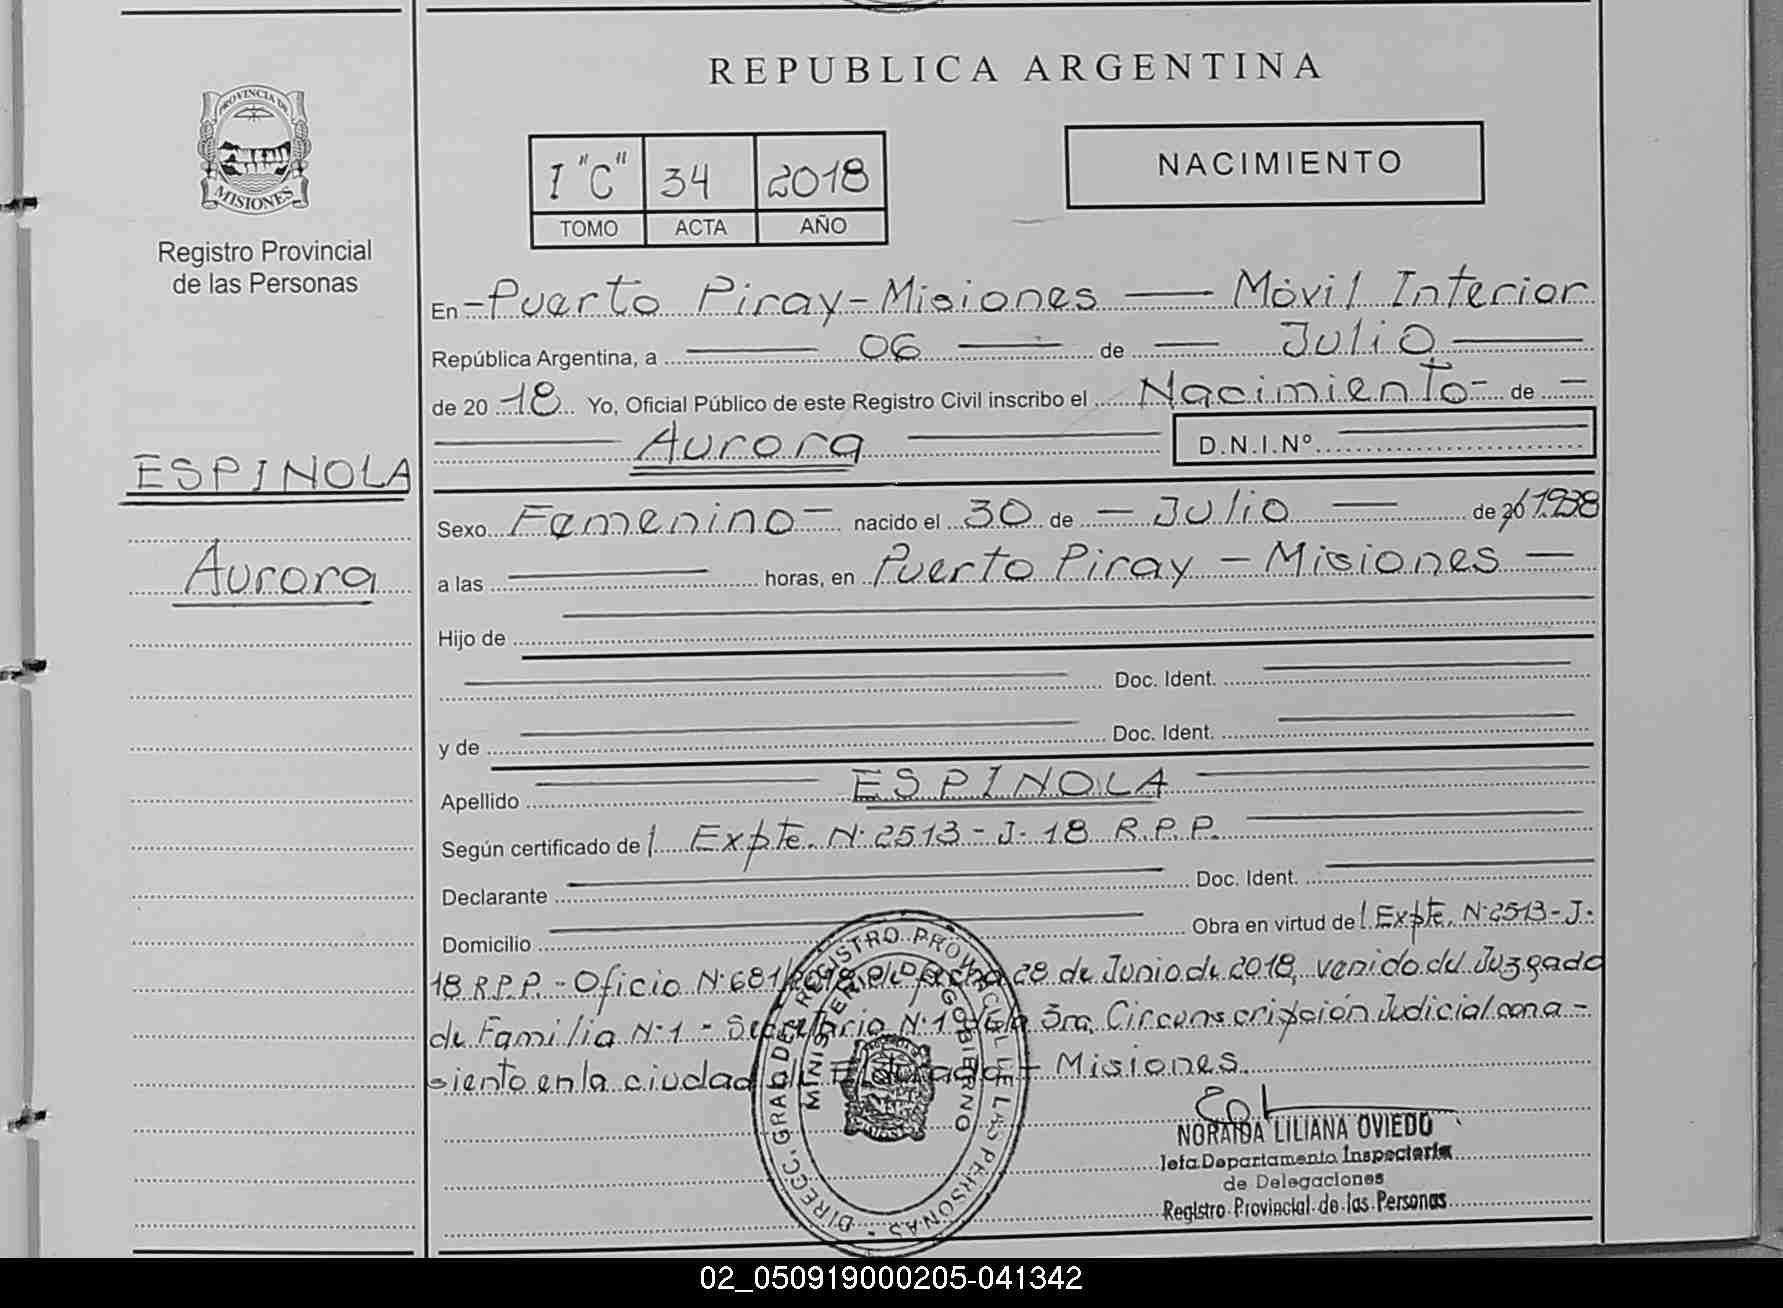 REPUBLICA ARGENTINA
PROVINCIA DE
MISIONES
Registro Provincial
de las Personas
I "C" 34 2018
TOMO ACTA AÑO
NACIMIENTO
En - Puerto Piray - Misiones — Móvil Interior
República Argentina, a — 06 — de — Julio —
de 20 18 Yo, Oficial Público de este Registro Civil inscribo el Nacimiento - de -
— Aurora — D.N.I.Nº —
ESPINOLA
Aurora
Sexo Femenino - nacido el 30 de - Julio — de 20 1.938
a las — horas, en Puerto Piray - Misiones —
Hijo de —
— Doc. Ident. —
y de — Doc. Ident. —
Apellido — ESPINOLA —
Según certificado de / Expte. N: 2513 - J- 18 R.P.P. —
Declarante — Doc. Ident. —
Domicilio — Obra en virtud de / Expte. N: 2513 - J-
18 R.P.P. - Oficio N: 681/2018 de fecha 28 de Junio de 2018, venido del Juzgado
de Familia N:1 - Secretario N:1 de la 3ra. Circunscripción Judicial con a-
siento en la ciudad de Eldorado - Misiones.
DIRECC. GRAL DEL REGISTRO PROVINCIAL DE LAS PERSONAS
MINISTERIO DE GOBIERNO
NORAIDA LILIANA OVIEDO
Jefa Departamento Inspectoría
de Delegaciones
Registro Provincial de las Personas
02_050919000205-041342